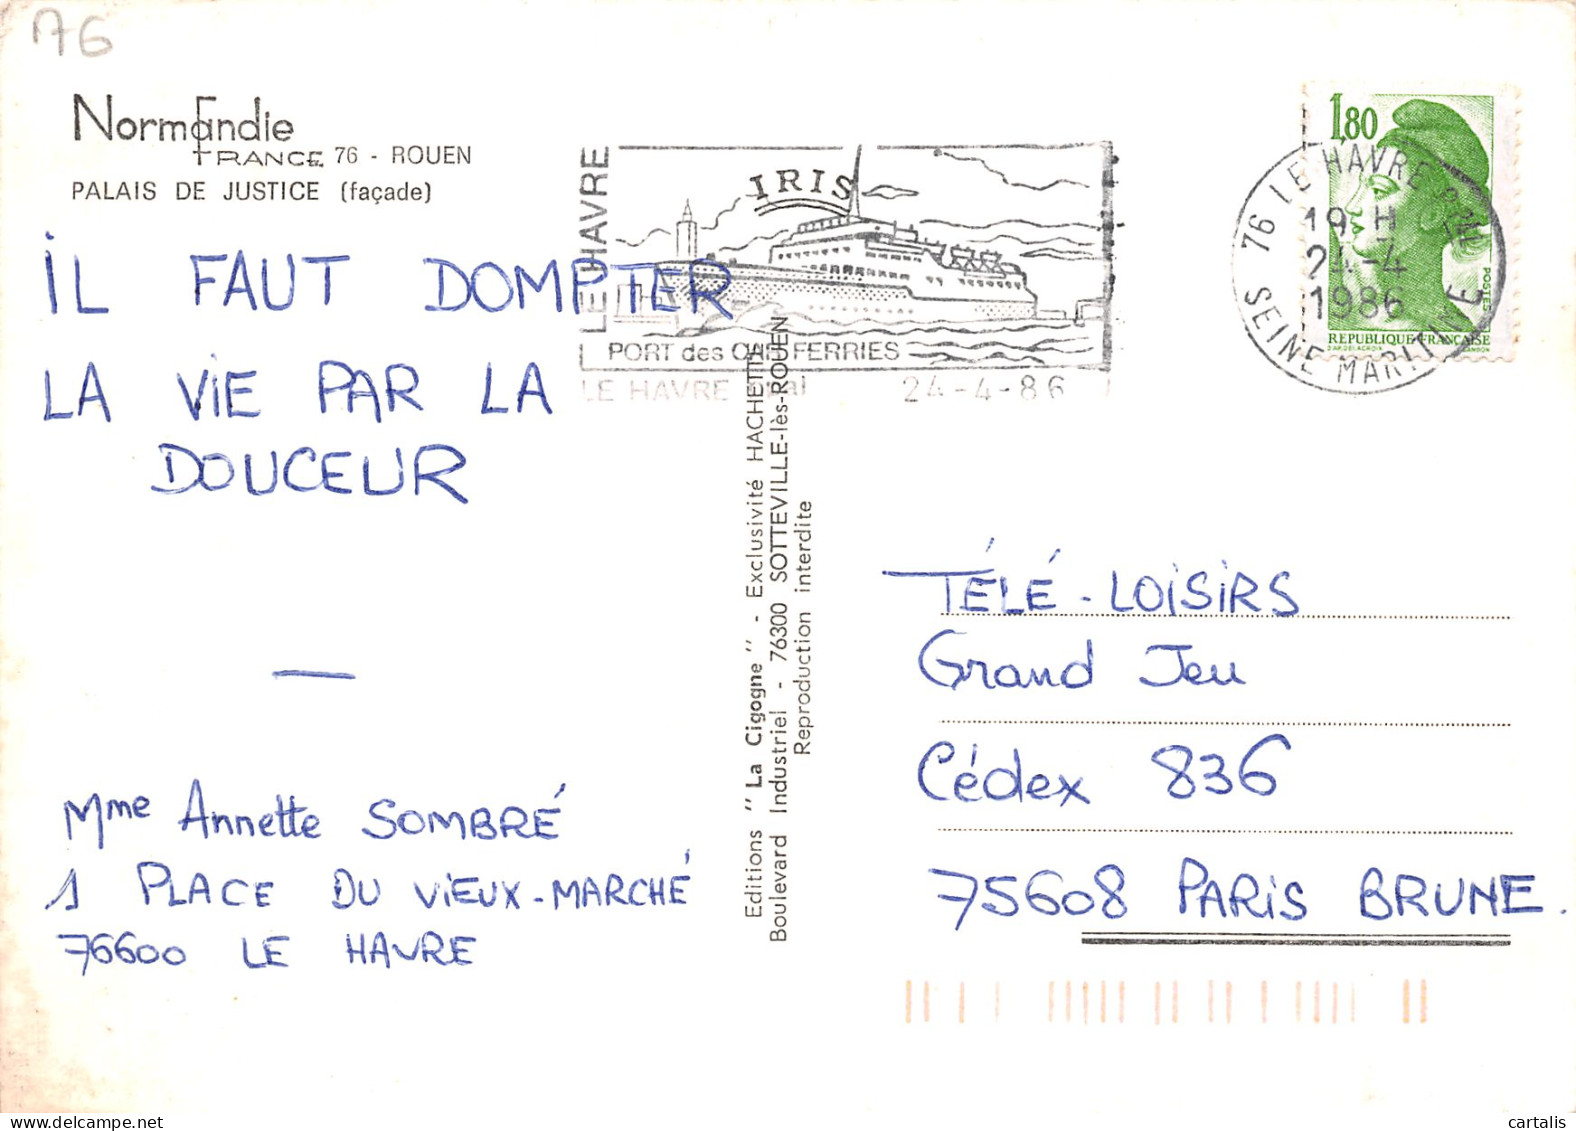 76
Normandie
FRANCE 76 - ROUEN
PALAIS DE JUSTICE (façade)
IL FAUT DOMPTER
LA VIE PAR LA
DOUCEUR
—
Mme Annette SOMBRÉ
1 PLACE DU VIEUX-MARCHÉ
76600 LE HAVRE
LE HAVRE
IRIS
PORT des CAR FERRIES
LE HAVRE
24-4-86
Editions "La Cigogne" - Exclusivité HACHETTE
Boulevard Industriel - 76300 SOTTEVILLE-lès-ROUEN
Reproduction interdite
1,80
POSTES
REPUBLIQUE FRANÇAISE
76 LE HAVRE
19 H
24-4
1986
SEINE MARITIME
TÉLÉ-LOISIRS
Grand Jeu
Cédex 836
75608 PARIS BRUNE.
cartalis
delcampe.net